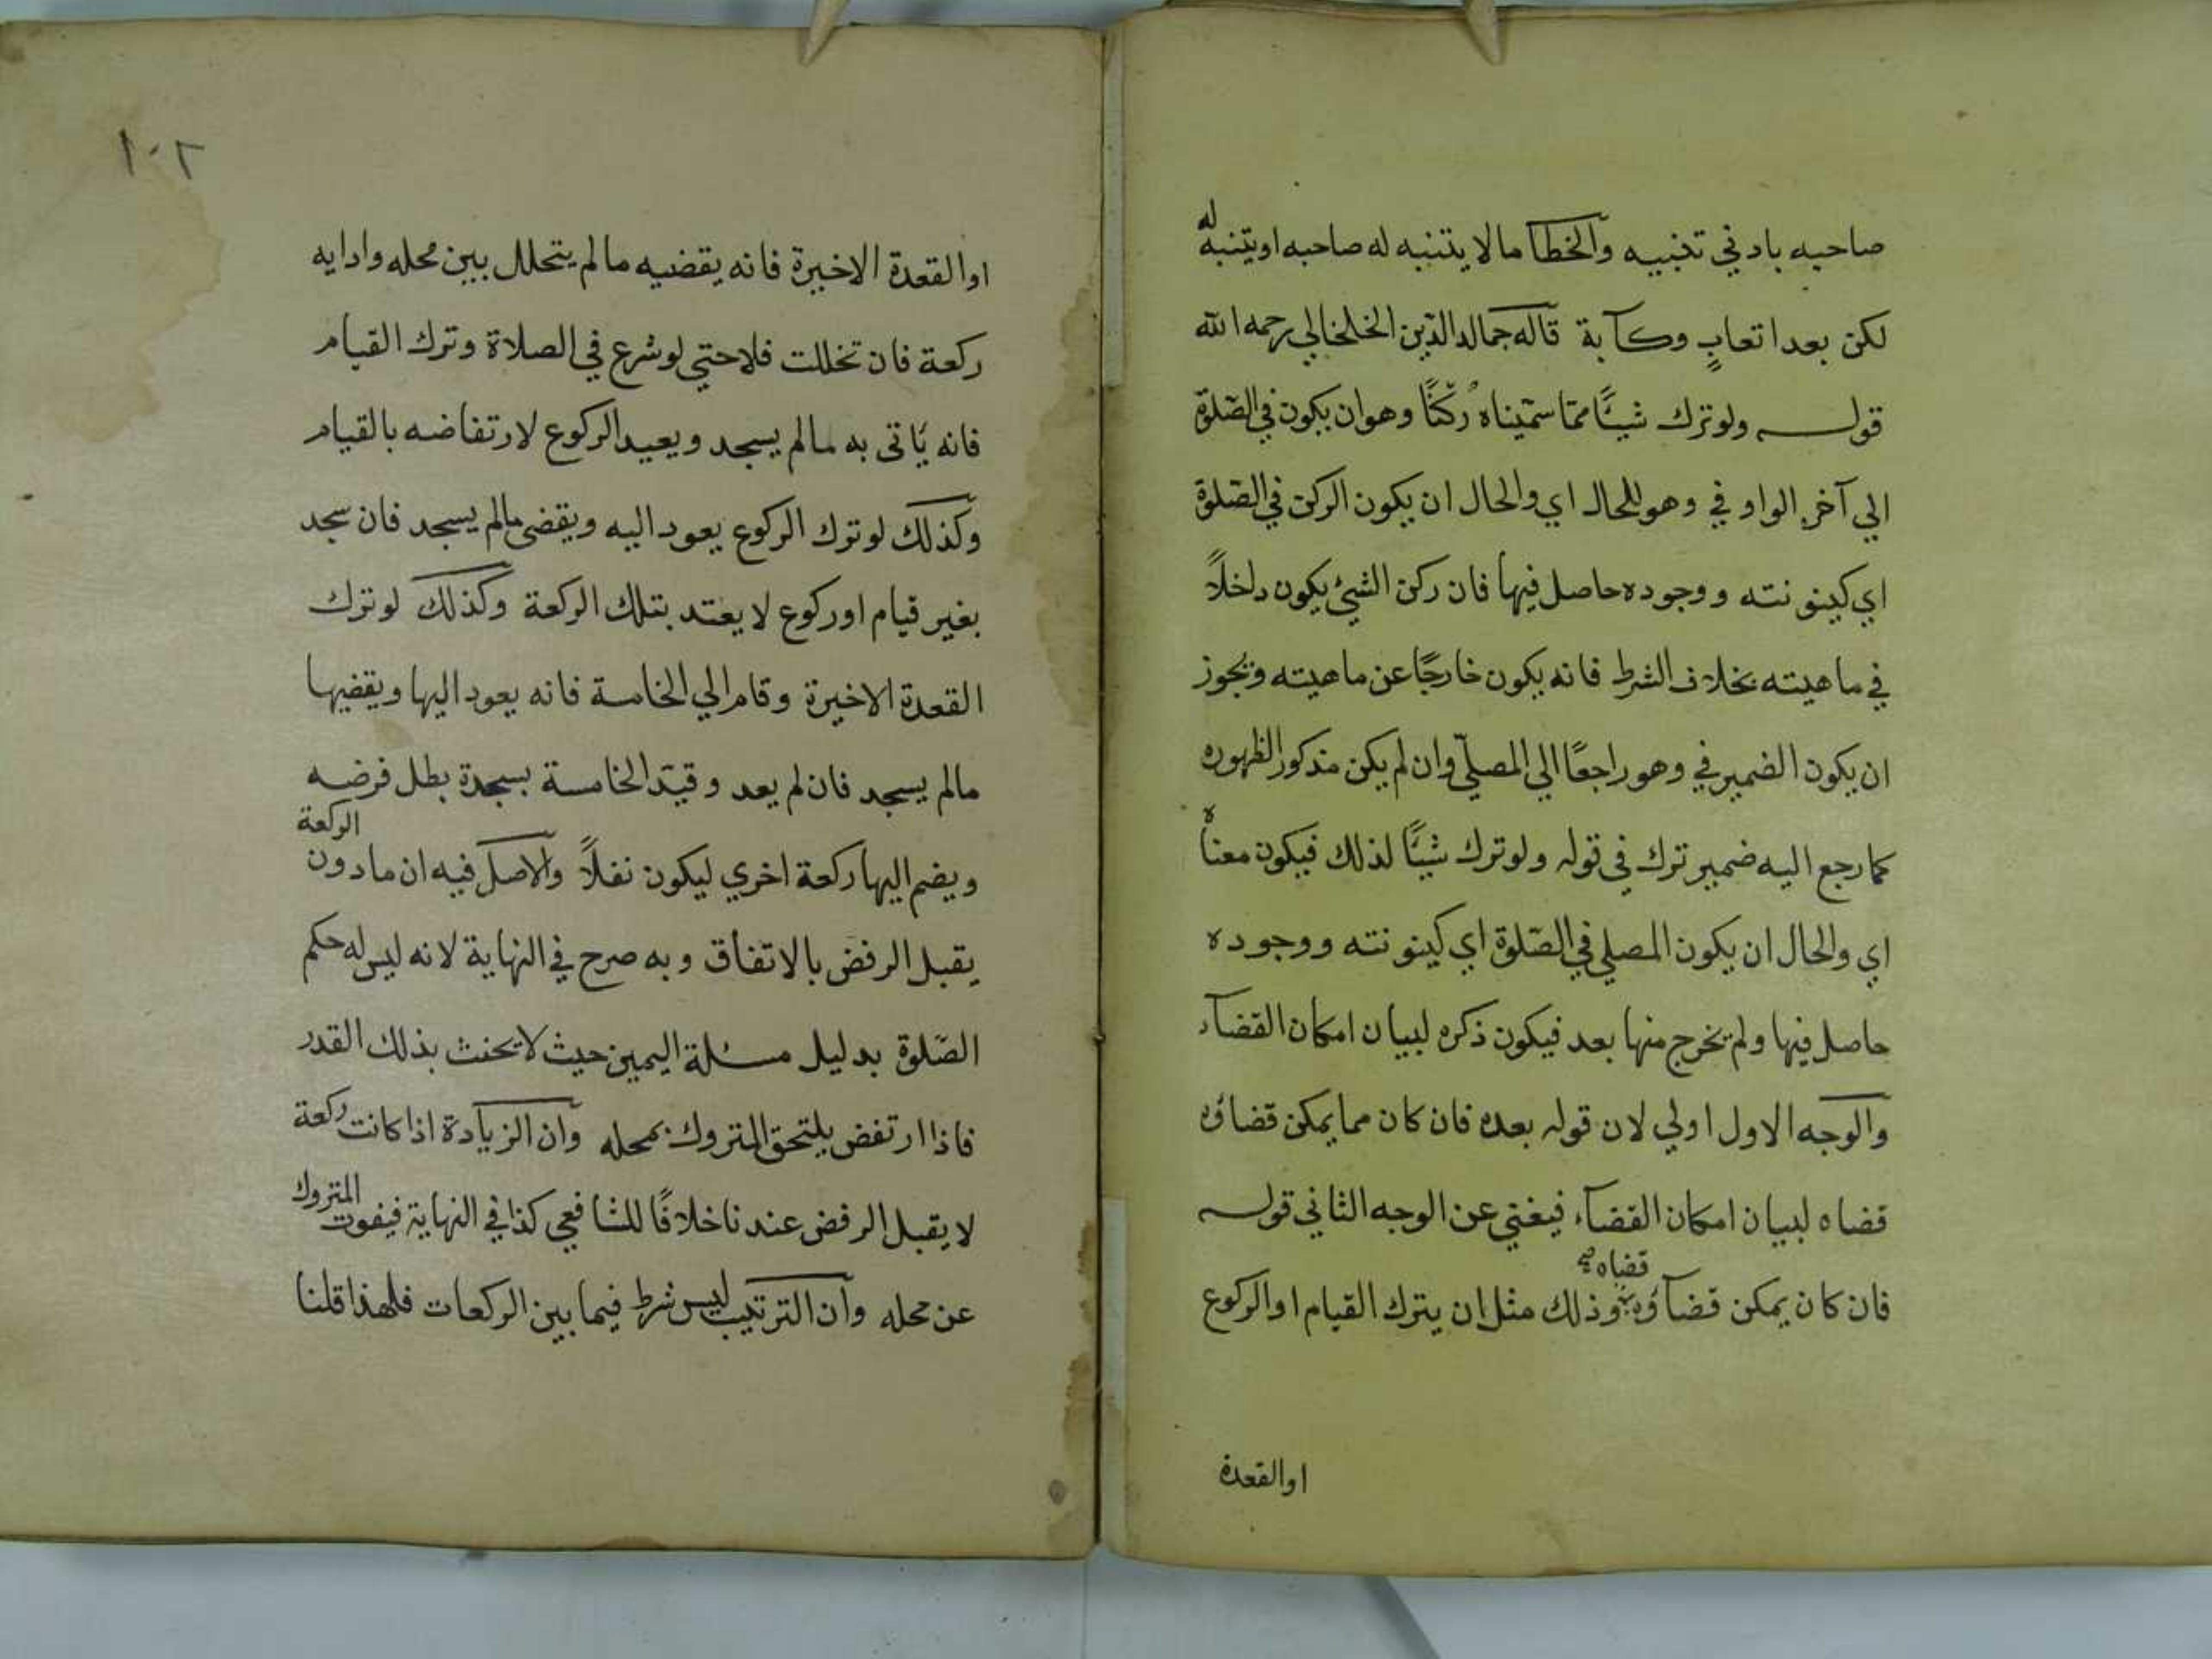 صاحبه بادني تنبيه والخطا مالا يتنبه له صاحبه اويتنبه له
لكن بعد اتعابٍ وكآبة قاله جمال الدّين الخلخالي رحمه الله
قوله ولو ترك شيئًا ممّا سمّيناه رُكْنًا وهو ان يكون في الصّلوة
الي آخر الواو في وهو للحال اي والحال ان يكون الركن في الصّلوة
اي كينونته ووجوده حاصل فيها فان ركن الشئ يكون داخلاً
في ماهيته بخلاف الشرط فانه يكون خارجًا عن ماهيته ويجوز
ان يكون الضمير في وهو راجعًا الي المصلّي وان لم يكن مذكور الظهوره
كما رجع اليه ضمير ترك في قوله ولو ترك شيئًا لذلك فيكون معناه
اي والحال ان يكون المصلي في الصّلوة اي كينونته ووجوده
حاصل فيها ولم يخرج منها بعد فيكون ذكره لبيان امكان القضآء
والوجه الاول اولي لان قوله بعده فان كان مما يمكن قضاؤه
قضاه لبيان امكان القضآء فيغني عن الوجه الثاني قوله
فان كان يمكن قضآؤه قضاه وذلك مثل ان يترك القيام او الركوع
او القعدة
١٠٢
او القعدة الاخيرة فانه يقضيه مالم يتحلل بين محله وادايه
ركعة فان تخللت فلا حتي لو شرع في الصلاة وترك القيام
فانه يأتى به مالم يسجد ويعيد الركوع لارتفاضه بالقيام
وكذلك لو ترك الركوع يعود اليه ويقضى مالم يسجد فان سجد
بغير قيام او ركوع لا يعتد بتلك الركعة وكذلك لو ترك
القعدة الاخيرة وقام الي الخامسة فانه يعود اليها ويقضيها
مالم يسجد فان لم يعد وقيّد الخامسة بسجدة بطل فرضه
ويضم اليها ركعة اخري ليكون نفلاً والاصل فيه ان مادون الركعة
يقبل الرفض بالاتفاق وبه صرح في النهاية لانه ليس له حكم
الصّلوة بدليل مسئلة اليمين حيث لا يحنث بذلك القدر
فاذا ارتفض يلتحق المتروك بمحله وان الزيادة اذا كانت ركعة
لا يقبل الرفض عندنا خلافًا للشافعي كذا في النهاية فيفوت المتروك
عن محله وان الترتيب ليس شرط فيما بين الركعات فلهذا قلنا